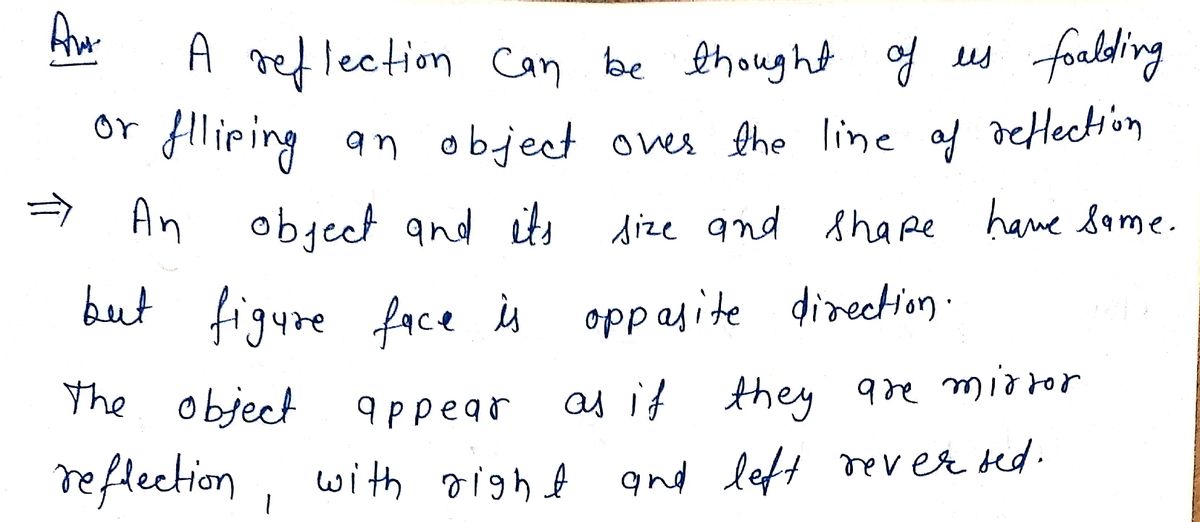 Ans A reflection can be thought of us foalding
or flliping an object over the line of reflection
⇒ An object and its size and shape have same.
but figure face is oppasite direction.
The object appear as if they are mirror
reflection, with right and left reversed.